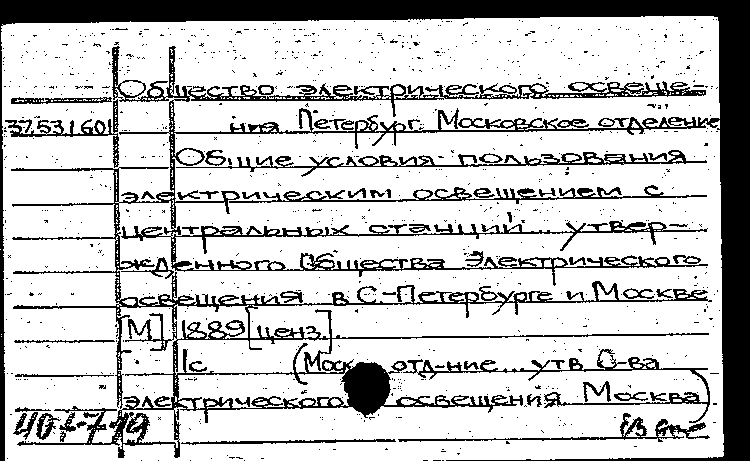 Общество электрического освеще-
37.53.1601 ния Петербург. Московское отделение
Общие условия пользования
электрическим освещением с
центральных станций... утвер-
жденного Общества Электрического
освещения в С-Петербурге и Москве
[М], 1889 [ценз.].
1с. (Моск. отд-ние... утв. О-ва
электрического освещения. Москва)
401-7-19